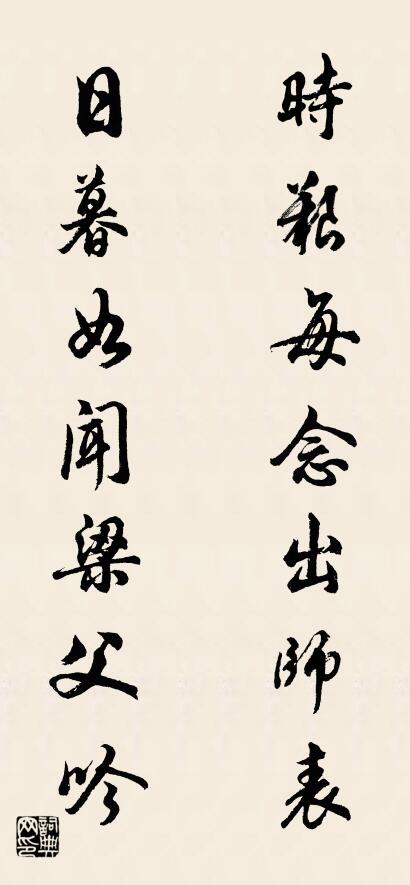 時艱每念出師表
日暮如聞梁父吟
詞典網印